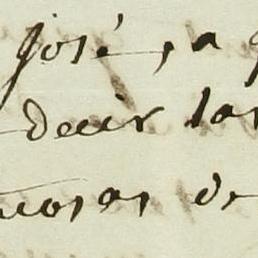 José, a
decir las
cosas de